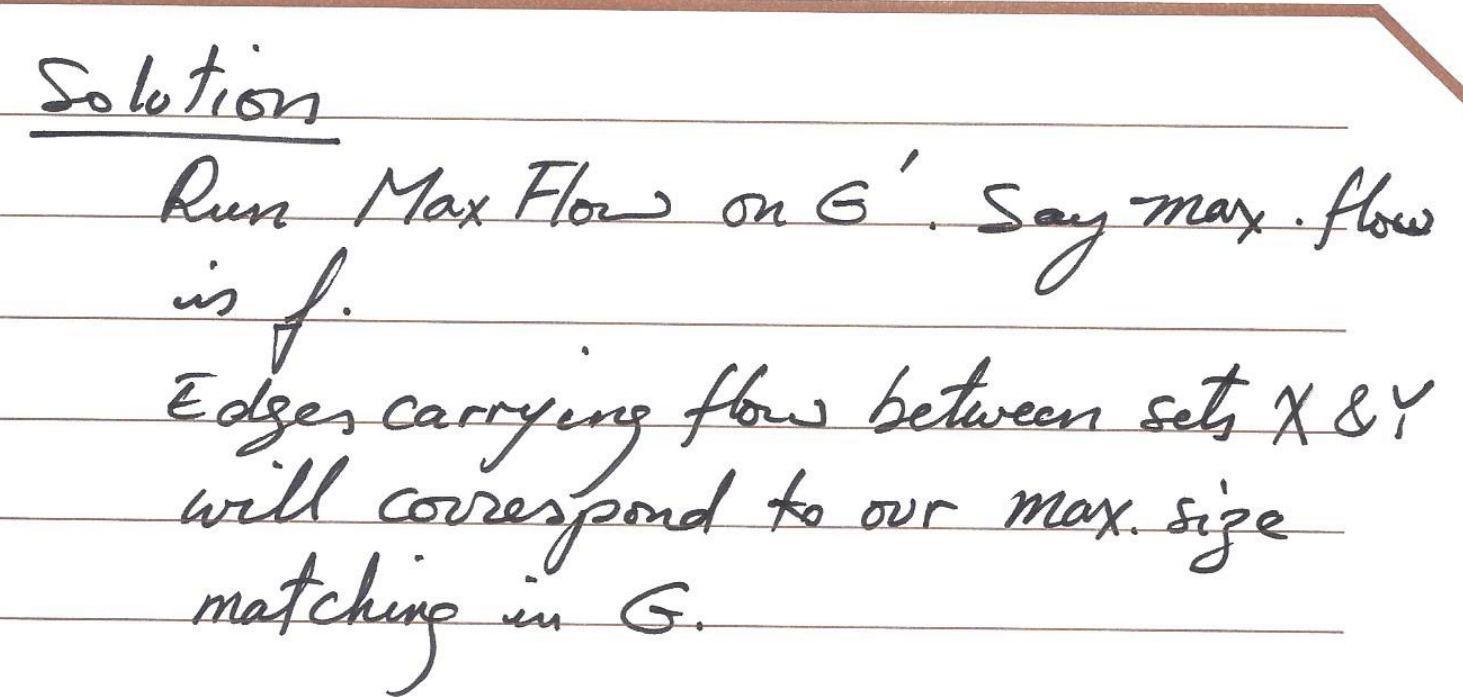 Solution
Run Max Flow on G'. Say max. flow
is f.
Edges carrying flow between sets X & Y
will correspond to our max. size
matching in G.